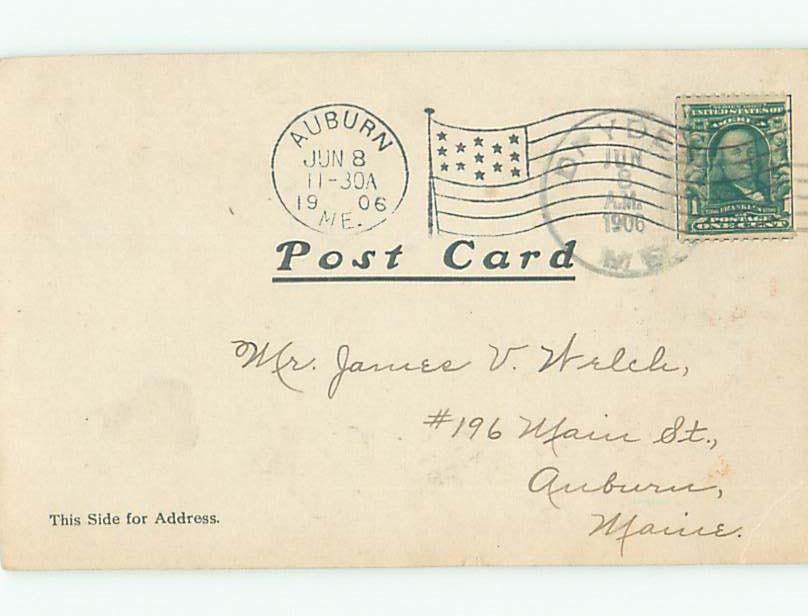 AUBURN
JUN 8
11-30A
19 06
ME.
DRYDEN
JUN
8
A.M.
1906
ME.
SERIES 1902
UNITED STATES OF
AMERICA
1 FRANKLIN 1
POSTAGE
ONE CENT
Post Card
Mr. James V. Welch,
#196 Main St.,
Auburn,
Maine.
This Side for Address.